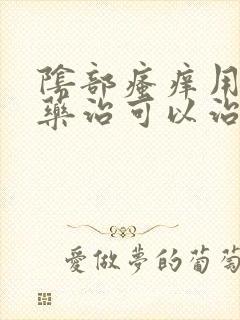 陰部瘙痒用
藥治可以治
愛做夢的葡萄